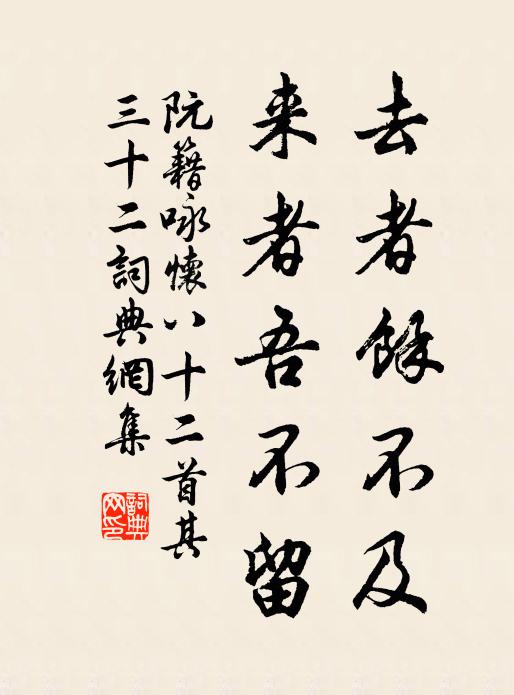 去者餘不及
来者吾不留
阮籍咏懷八十二首其
三十二詞典網集
詞典网印